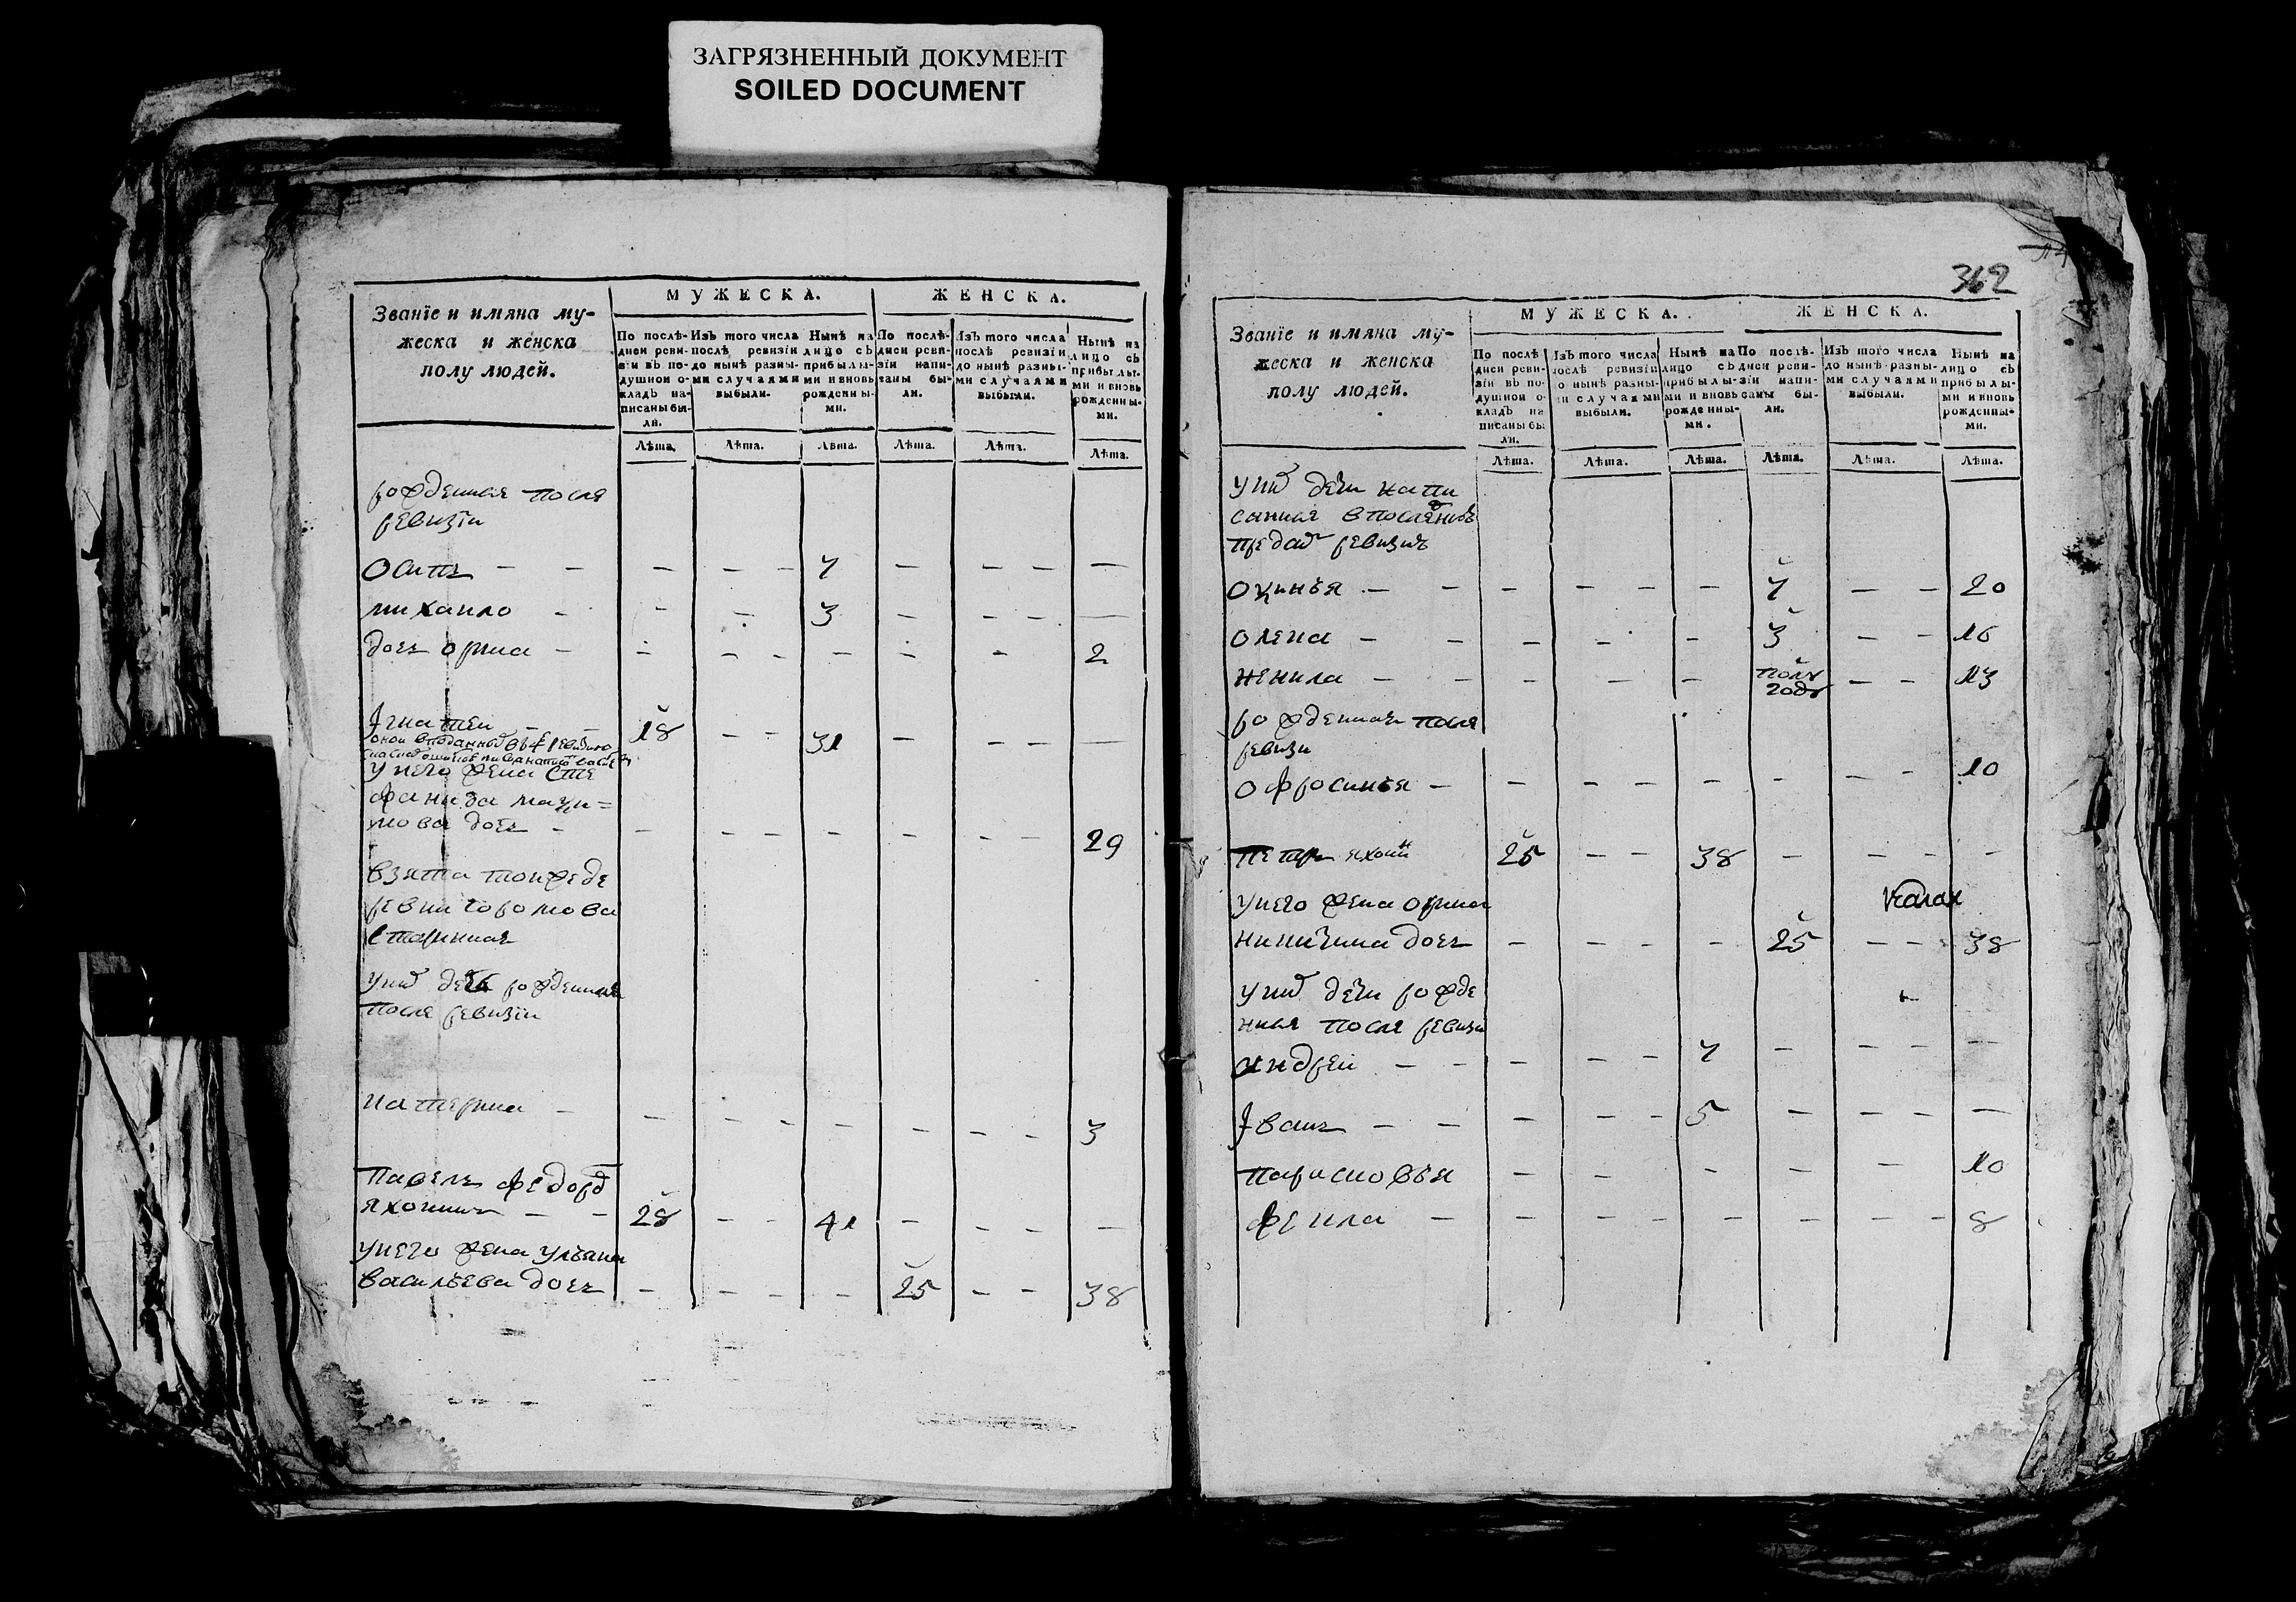 ЗАГРЯЗНЕННЫЙ ДОКУМЕНТ
SOILED DOCUMENT
Званїе и имяна му-
жеска и женска
полу людей.
МУЖЕСКА.
ЖЕНСКА.
По послѣ-
дней реви-
зїи въ по-
душной о-
кладъ на-
писаны бы-
ли.
Изъ того числа
послѣ ревизїи
до нынѣ разны-
ми случаями
выбыли.
Нынѣ на
лицо съ
прибылы-
ми и вновь
рожденны-
ми.
По послѣ-
дней реви-
зїи напи-
саны бы-
ли.
Изъ того числа
послѣ ревизїи
до нынѣ разны-
ми случаями
выбыли.
Нынѣ на
лицо съ
прибылы-
ми и вновь
рожденны-
ми.
Лѣта. Лѣта. Лѣта. Лѣта. Лѣта. Лѣта.
рожденные после
ревизїи
осипъ - - - - - 7 - - - -
михаило - - - 3 - - - -
дочь орина - - - - - - - 2
Iгнатеи - - 18 - - 31 - - - -
у него жена сте
фанида макси=
мова дочь - - - - - - - - 29
взята тоижъ де
ревни
старинная
у них дети рожденные
после ревизїи
катерина - - - - - - - - 3
павелъ федоров
яхонинъ - - 28 - - 41 - - - -
у него жена ульяна
васильева дочь - - - - 25 - - 38
362
Званїе и имяна му-
жеска и женска
полу людей.
МУЖЕСКА.
ЖЕНСКА.
По послѣ-
дней реви-
зїи въ по-
душной о-
кладъ на-
писаны бы-
ли.
Изъ того числа
послѣ ревизїи
до нынѣ разны-
ми случаями
выбыли.
Нынѣ на
лицо съ
прибылы-
ми и вновь
рожденны-
ми.
По послѣ-
дней реви-
зїи напи-
саны бы-
ли.
Изъ того числа
до нынѣ разны-
ми случаями
выбыли.
Нынѣ на
лицо съ
прибылы-
ми и вновь
рожденны-
ми.
Лѣта. Лѣта. Лѣта. Лѣта. Лѣта. Лѣта.
у них дети напи
санные в последней
пред сей ревизиї
окинья - - - - - - 7 - - 20
олена - - - - - 3 - - 16
ненила - - - - - полу - - 13
году
рожденная после
ревизи
офросинья - - - - - - - - 10
петръ яхонин 25 - - 38 - - - -
у него жена орина
никитина дочь - - - - 25 - - - 38
у них дети рожде
ные после ревизи
андреи - - - - - 7 - - - -
Iванъ - - - - - 5 - - - -
парасковья - - - - - - 10
фекла - - - - - - - - 8